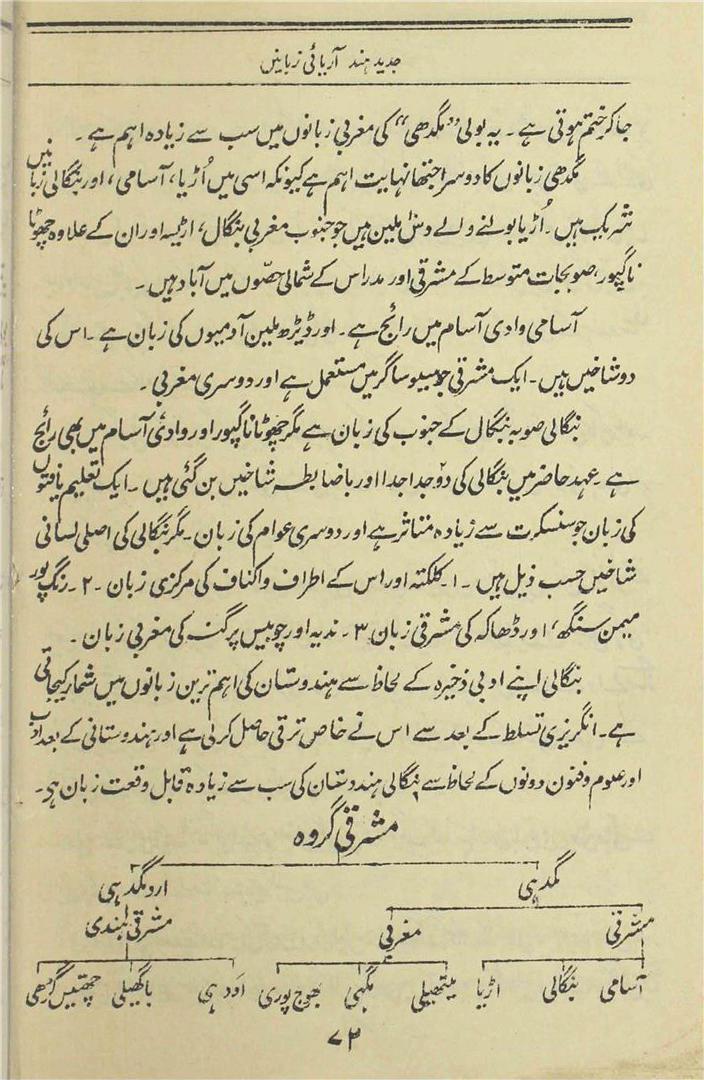 جدید ہند آریائی زبانیں
جا کر ختم ہوتی ہے ۔ یہ بولی "مگدھی" کی مغربی زبانوں میں سب سے زیادہ اہم ہے ۔
مگدھی زبانوں کا دوسرا جتھا نہایت اہم ہے کیونکہ اسی میں اُڑیا، آسامی، اور بنگالی زبانیں
شریک ہیں ۔ اُڑیا بولنے والے دس ملین ہیں جو جنوب مغربی بنگال، اڑیسہ اور ان کے علاوہ چھوٹا
ناگپور، صوبجات متوسط کے مشرقی اور مدراس کے شمالی حصّوں میں آباد ہیں ۔
آسامی وادی آسام میں رائج ہے ۔ اور ڈیڑھ ملین آدمیوں کی زبان ہے ۔ اس کی
دو شاخیں ہیں ۔ ایک مشرقی جو سیبوساگر میں مستعمل ہے اور دوسری مغربی ۔
بنگالی صوبہ بنگال کے جنوب کی زبان ہے مگر چھوٹا ناگپور اور وادئ آسام میں بھی رائج
ہے ۔ عہد حاضر میں بنگالی کی دو جدا جدا اور باضابطہ شاخیں بن گئی ہیں ۔ ایک تعلیم یافتوں
کی زبان جو سنسکرت سے زیادہ متاثر ہے اور دوسری عوام کی زبان ۔ مگر بنگالی کی اصلی لسانی
شاخیں حسب ذیل ہیں ۔ ۱ ۔ کلکتہ اور اس کے اطراف و اکناف کی مرکزی زبان ۔ ۲ ۔ رنگ پور
میمن سنگھ، اور ڈھاکہ کی مشرقی زبان ۳ ۔ ندیہ اور چوبیس پرگنہ کی مغربی زبان ۔
بنگالی اپنے ادبی ذخیرہ کے لحاظ سے ہندوستان کی اہم ترین زبانوں میں شمار کیجاتی
ہے ۔ انگریزی تسلط کے بعد سے اس نے خاص ترقی حاصل کر لی ہے اور ہندوستانی کے بعد ادب
اور علوم و فنون دونوں کے لحاظ سے بنگالی ہندوستان کی سب سے زیادہ قابل وقعت زبان ہو ۔
مشرقی گروہ
مگدہی اردمگدہی
مشرقی مغربی مشرقی ہندی
آسامی بنگالی اڑیا میتھیلی مگہی بھوج پوری اود ہی باگھیلی چھتیس گڑھی
۷۳